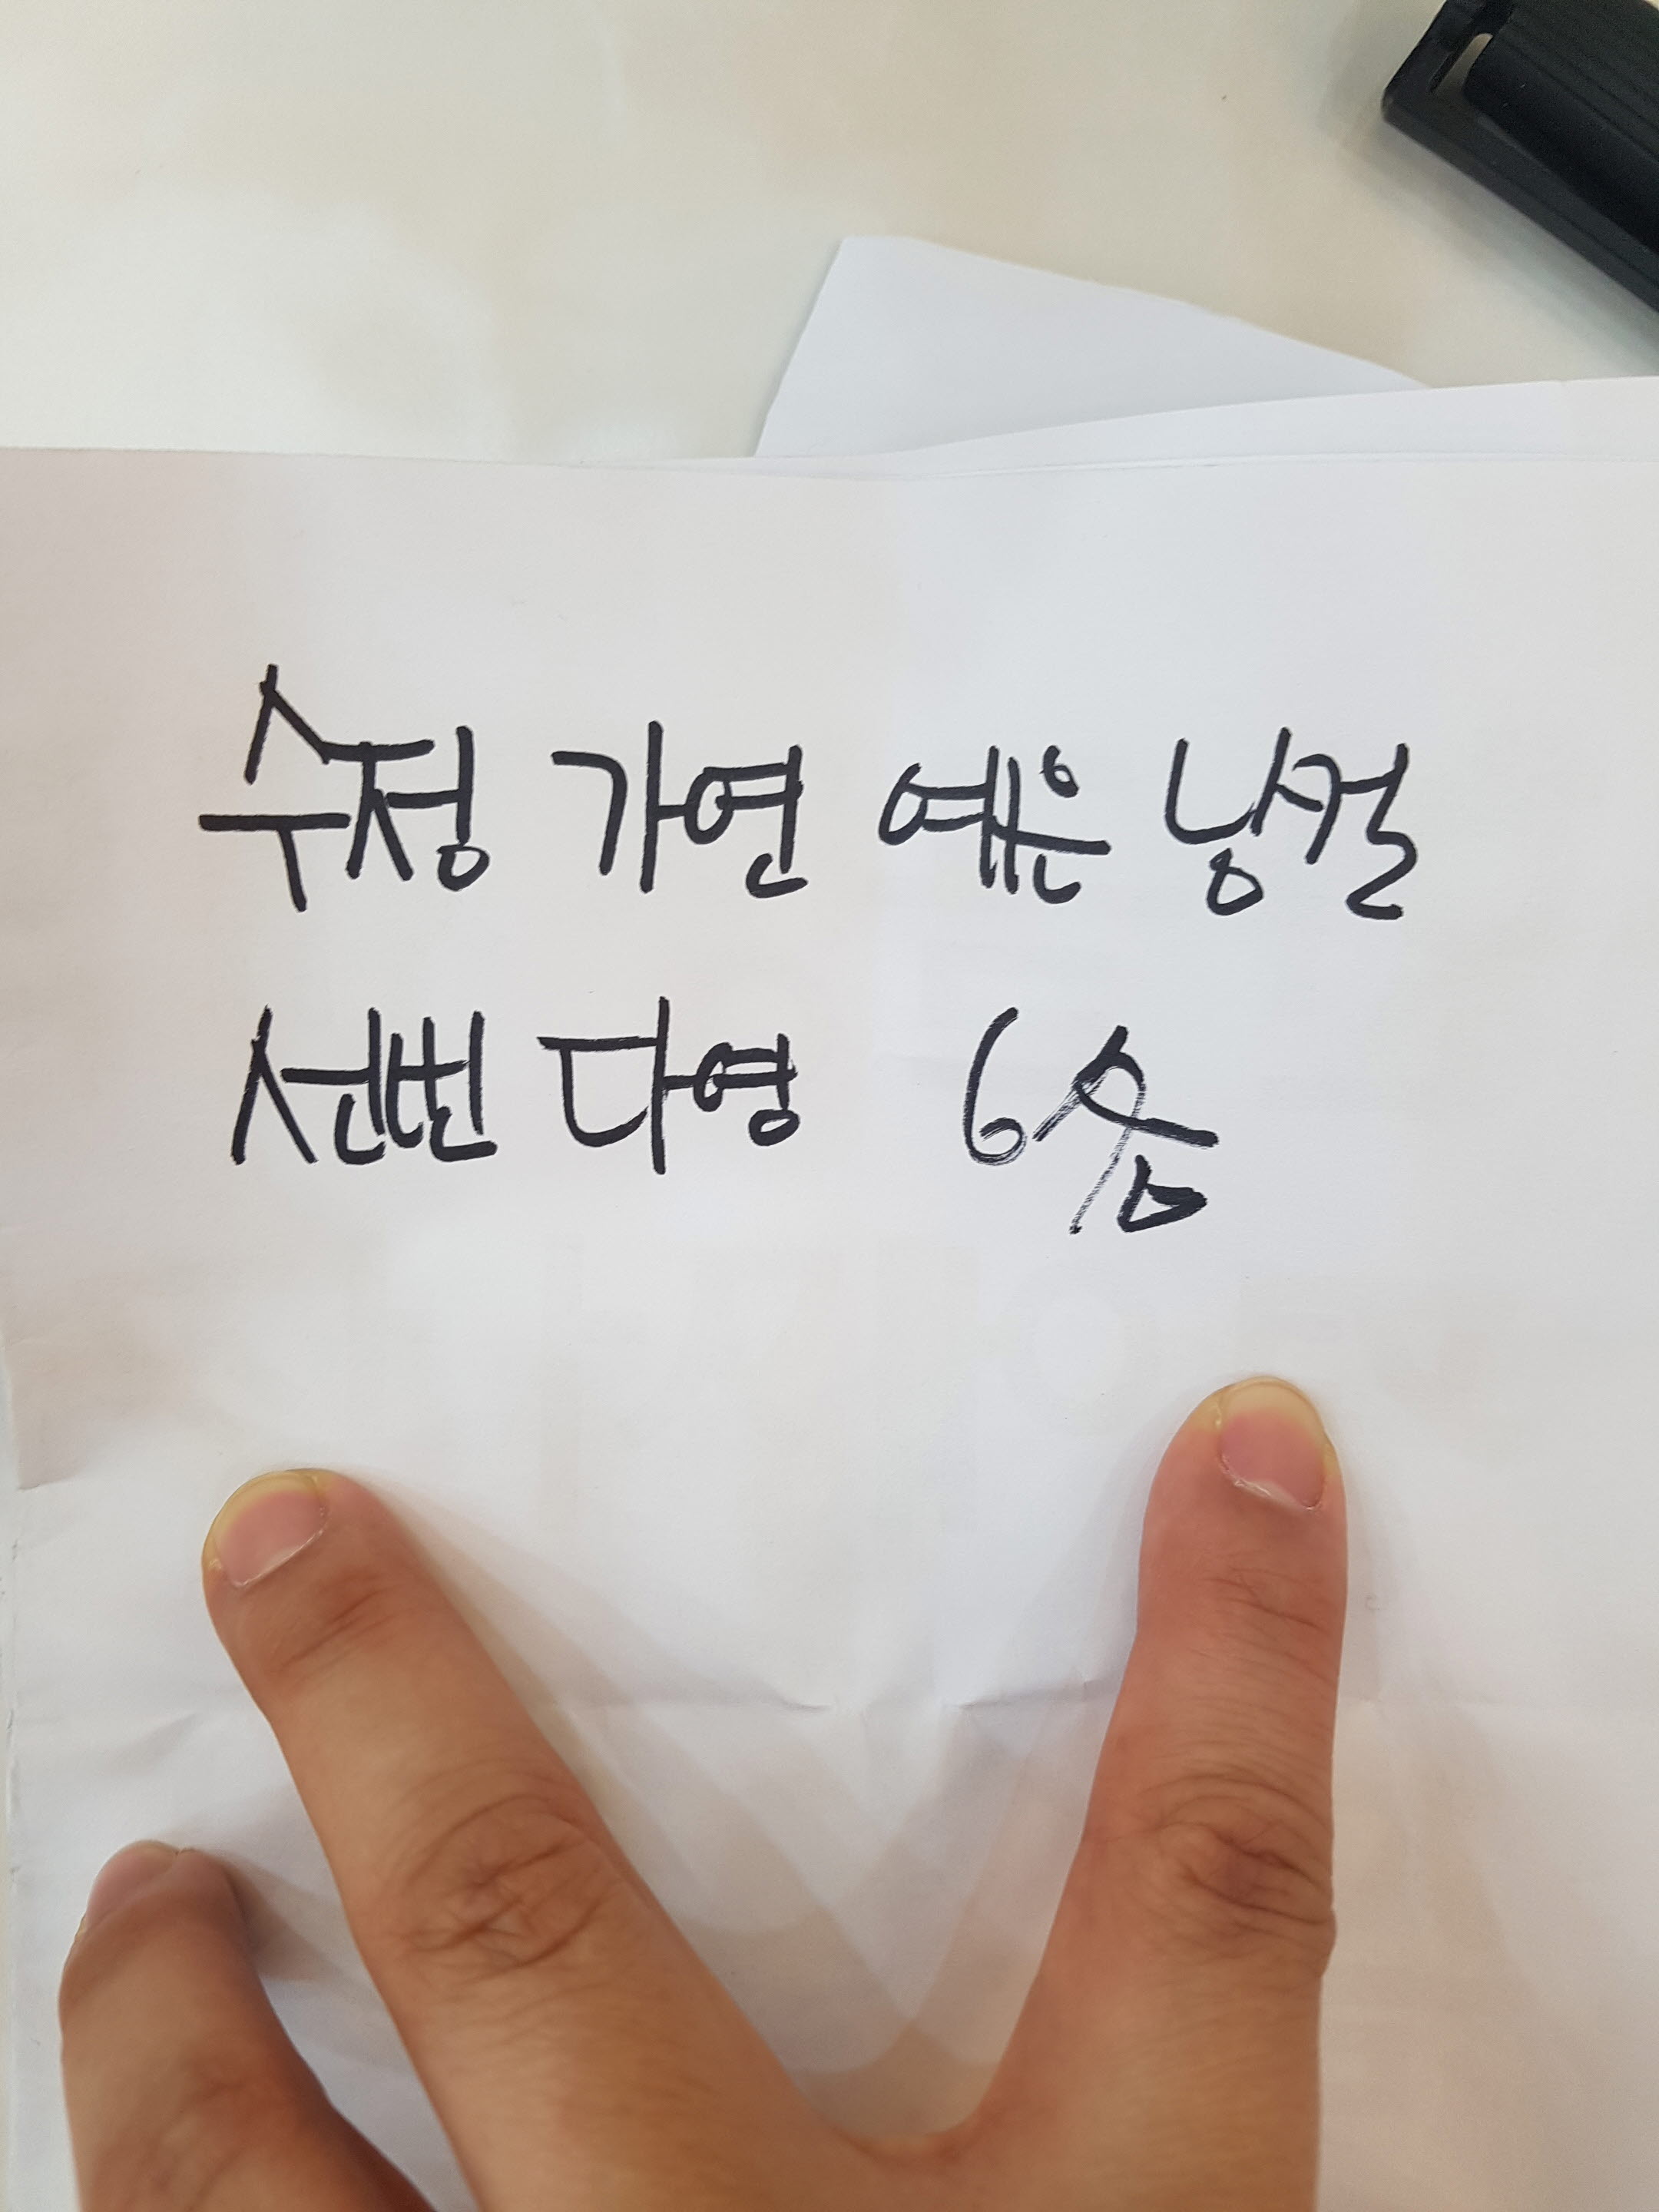 수정 가연 예은 낭걸
선빈 다영 6솜